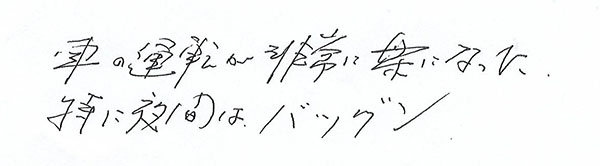 車の運転が非常に楽になった、
特に夜間は、バツグン